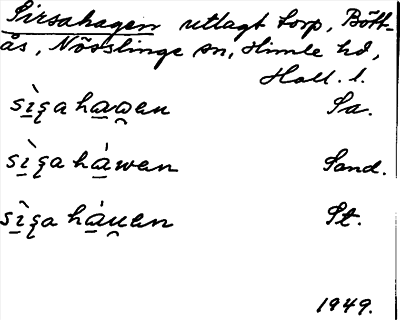 Sirsahagen utlagt torp, Bött-
ås, Nösslinge sn, Himle hd,
Hall. l.
sìʂa hagen Sa.
sìʂa háwen Sand.
sìʂa háu̯en St.
1949.